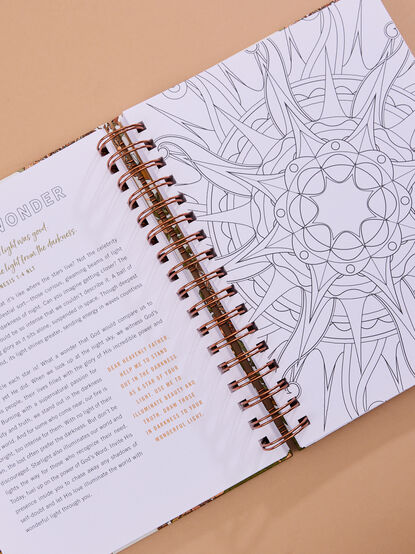 WONDER
light was good.
he light from the darkness.
NESIS 1:4 NLT
at it's like where the stars live? Not the celebrity
stial sort, those curious, gleaming beams of light
darkness of night. Can you imagine getting close? The
ould be so vibrant that we couldn't describe it. A ball of
glory as if it's alive, suspended in space. Though denoted
nd, its light shines greater, sending energy in waves countless
each star is! What a wonder that God would compare us to
yet we did. When we look up at the night sky, we witness God's
as people, their lives filled with the glory of His incredible power and
Burning with a supernatural passion for
and truth, we stand out in the darkness
world. And for some who come near, our fire is
ught, too intense for them. With no light of their
wn, the lost often adopt the darkness. But don't be
discouraged. Starlight also illuminates our world and
lights the way for those who recognize their need.
Today, fuel up on the power of God's Word. Invite His
presence inside you to chase away any shadows of
self-doubt and let His love illuminate the world with
wonderful light through you.
DEAR HEAVENLY FATHER,
GOD, ME TO STAND
OUT IN THE DARKNESS
AS A STAR OF YOUR
LIGHT. USE ME TO
ILLUMINATE BEAUTY AND
TRUTH. DRAW THOSE
IN DARKNESS TO YOUR
WONDERFUL LIGHT.